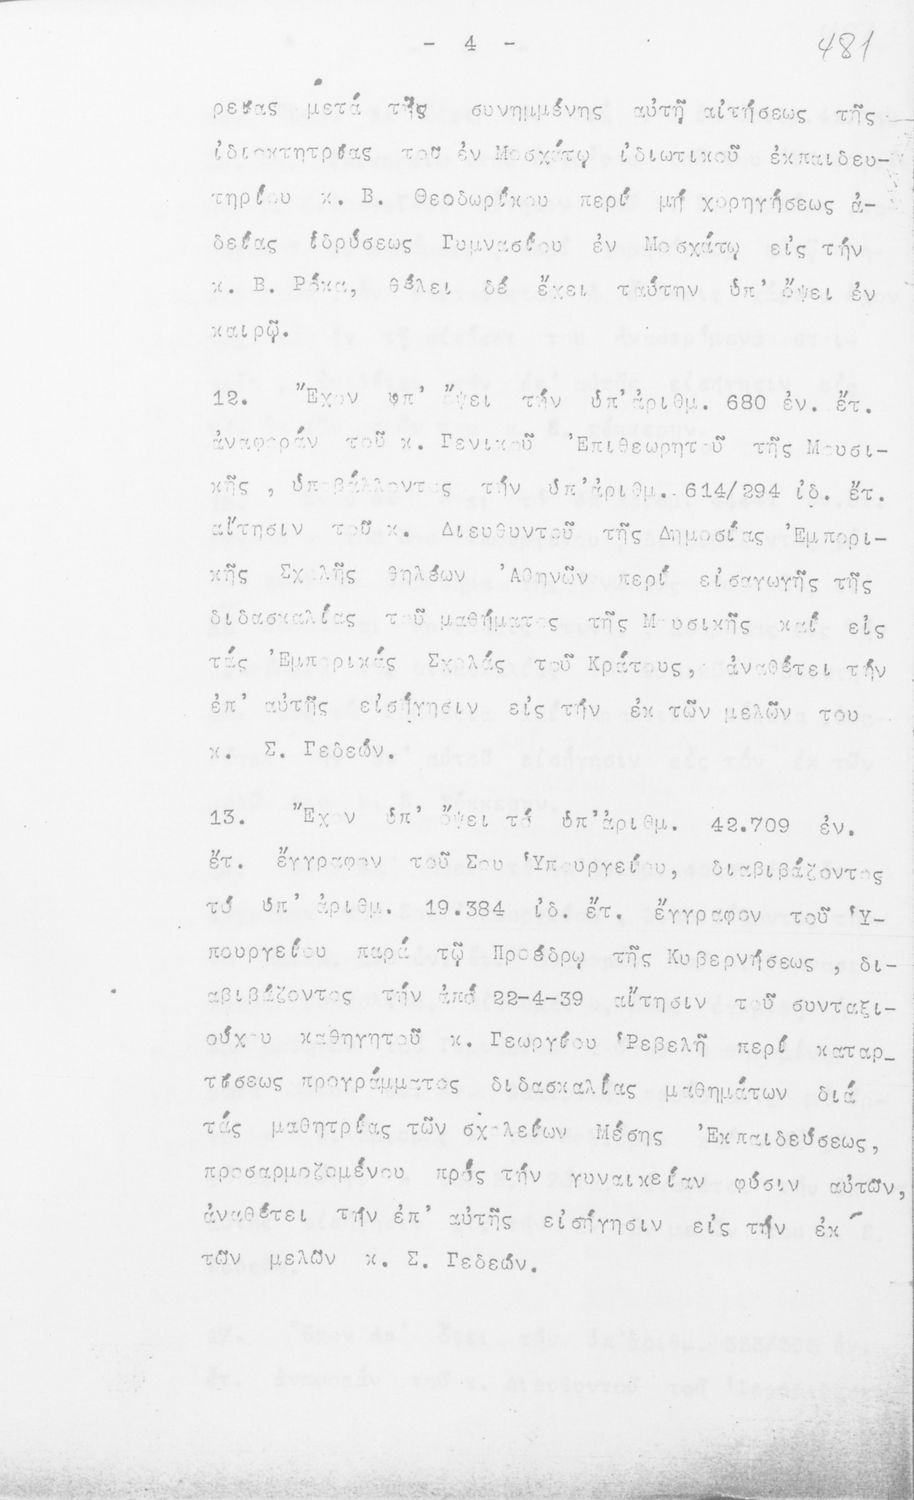 - 4 -
481
ρείας μετά τῆς συνημμένης αὐτῇ αἰτήσεως τῆς
ἰδιοκτητρίας τοῦ ἐν Μοσχάτῳ ἰδιωτικοῦ ἐκπαιδευ-
τηρίου κ. Β. Θεοδωρίκου περί μή χορηγήσεως ἀ-
δείας ἱδρύσεως Γυμνασίου ἐν Μοσχάτῳ εἰς τήν
κ. Β. Ρέκα, θέλει δέ ἔχει ταύτην ὑπ' ὄψει ἐν
καιρῷ.
12. Ἔχον ὑπ' ὄψει τήν ὑπ'ἀριθμ. 680 ἐν. ἔτ.
ἀναφοράν τοῦ κ. Γενικοῦ Ἐπιθεωρητοῦ τῆς Μουσι-
κῆς , ὑποβάλλοντος τήν ὑπ'ἀριθμ. 614/294 ἰδ. ἔτ.
αἴτησιν τοῦ κ. Διευθυντοῦ τῆς Δημοσίας Ἐμπορι-
κῆς Σχολῆς θηλέων Ἀθηνῶν περί εἰσαγωγῆς τῆς
διδασκαλίας τοῦ μαθήματος τῆς Μουσικῆς καί εἰς
τάς Ἐμπορικάς Σχολάς τοῦ Κράτους, ἀναθέτει τήν
ἐπ' αὐτῆς εἰσήγησιν εἰς τήν ἐκ τῶν μελῶν του
κ. Σ. Γεδεών.
13. Ἔχον ὑπ' ὄψει τό ὑπ'ἀριθμ. 42.709 ἐν.
ἔτ. ἔγγραφον τοῦ Σου Ὑπουργείου, διαβιβάζοντος
τό ὑπ' ἀριθμ. 19.384 ἰδ. ἔτ. ἔγγραφον τοῦ Ὑ-
πουργείου παρά τῷ Προέδρῳ τῆς Κυβερνήσεως , δι-
αβιβάζοντος τήν ἀπό 22-4-39 αἴτησιν τοῦ συνταξι-
ούχου καθηγητοῦ κ. Γεωργίου Ῥεβελῆ περί καταρ-
τίσεως προγράμματος διδασκαλίας μαθημάτων διά
τάς μαθητρίας τῶν σχολείων Μέσης Ἐκπαιδεύσεως,
προσαρμοζομένου πρός τήν γυναικείαν φύσιν αὐτῶν,
ἀναθέτει τήν ἐπ' αὐτῆς εἰσήγησιν εἰς τήν ἐκ
τῶν μελῶν κ. Σ. Γεδεών.